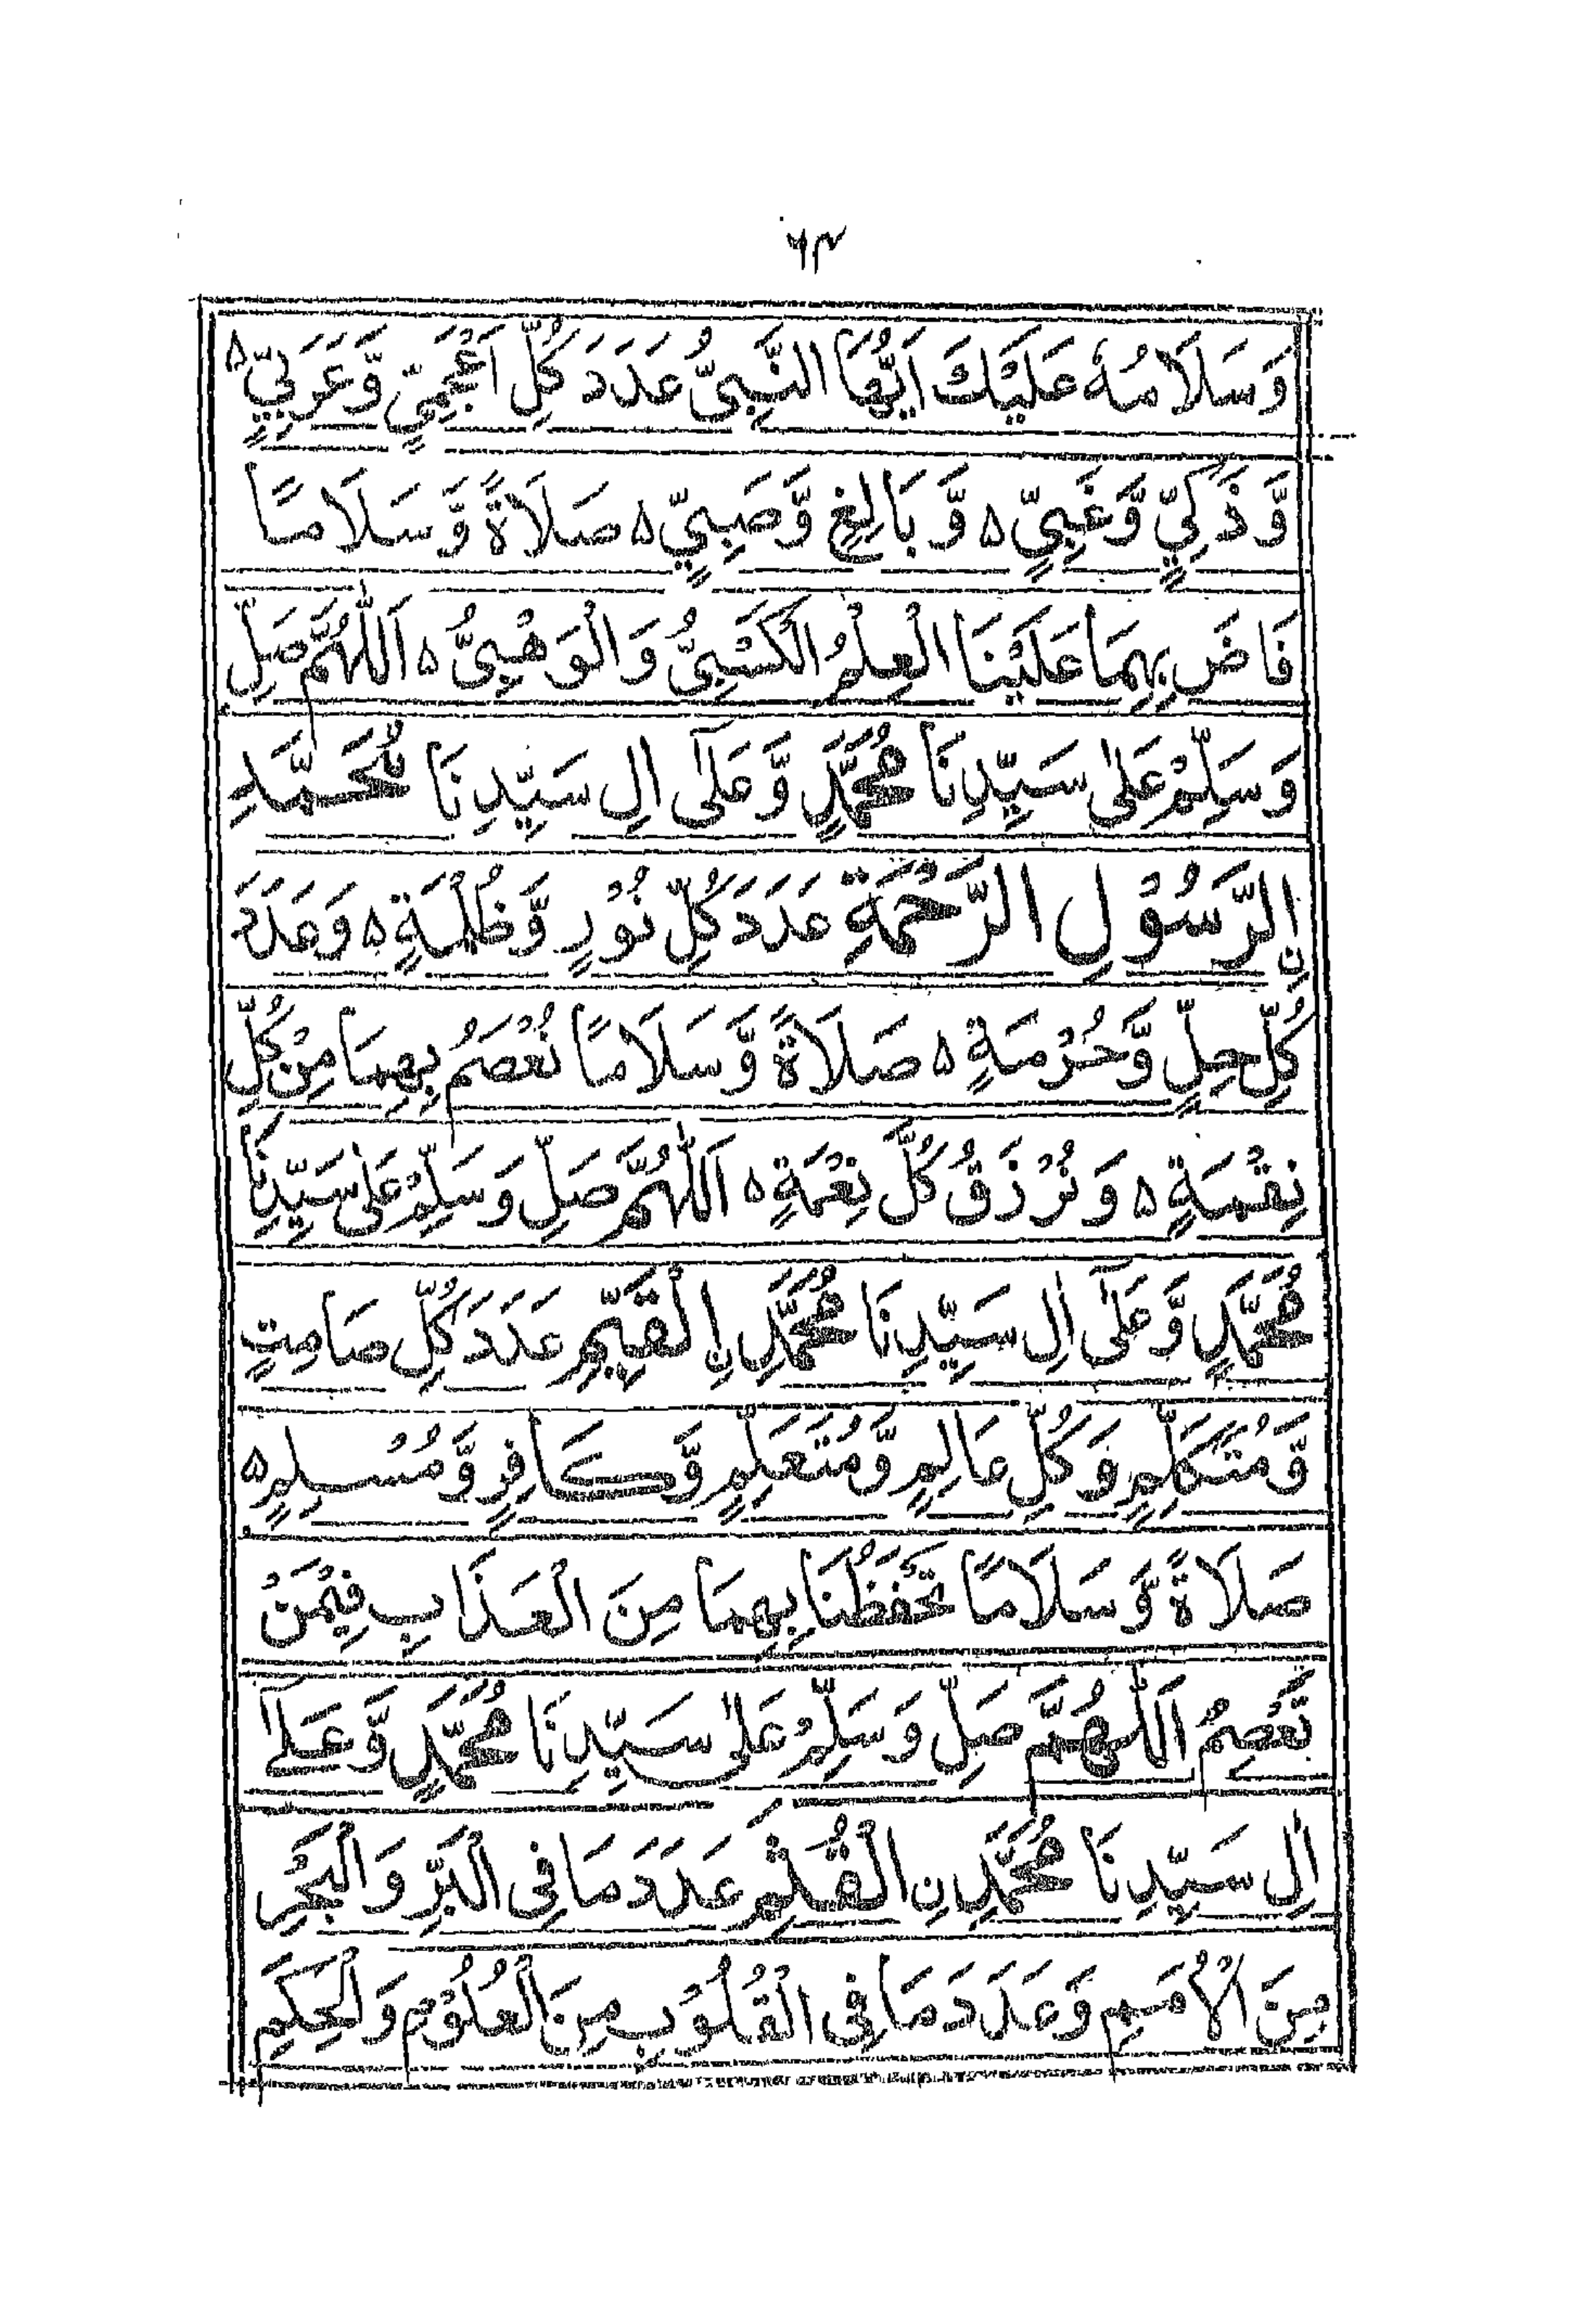 ٦٣
وَسَلَامُهٗ عَلَيْكَ اَيُّهَا النَّبِىُّ عَدَدَ كُلِّ اَعْجَمِيٍّ وَّعَرَبِيٍّ ه
وَّذَكِيٍّ وَّغَبِيٍّ ه وَّبَالِغٍ وَّصَبِيٍّ ه صَلَاةً وَّسَلَامًا
فَاضَ بِهِمَا عَلَيْنَا الْعِلْمُ الْكَسْبِىُّ وَالْوَهْبِىُّ ه اَللّٰهُمَّ صَلِّ
وَسَلِّمْ عَلٰى سَيِّدِنَا مُحَمَّدٍ وَّعَلٰٓى اٰلِ سَيِّدِنَا مُحَمَّدِ
نِ الرَّسُوْلِ الرَّحْمَةِ عَدَدَ كُلِّ نُوْرٍ وَّظُلْمَةٍ ه وَعَدَدَ
كُلِّ حِلٍّ وَّحُرْمَةٍ ه صَلَاةً وَّسَلَامًا نُعْصَمُ بِهِمَا مِنْ كُلِّ
نِقْمَةٍ ه وَنُرْزَقُ كُلَّ نِعْمَةٍ ه اَللّٰهُمَّ صَلِّ وَسَلِّمْ عَلٰى سَيِّدِنَا
مُحَمَّدٍ وَّعَلٰٓى اٰلِ سَيِّدِنَا مُحَمَّدِ نِ الْقَيِّمِ عَدَدَ كُلِّ صَامِتٍ
وَّمُتَكَلِّمٍ وَكُلِّ عَالِمٍ وَّمُتَعَلِّمٍ وَّكَافِرٍ وَّمُسْلِمٍ ه
صَلَاةً وَّسَلَامًا تَحْفَظُنَا بِهِمَا مِنَ الْعَذَابِ فِيْمَنْ
تَعْصِمُ اَللّٰهُمَّ صَلِّ وَسَلِّمْ عَلٰى سَيِّدِنَا مُحَمَّدٍ وَّعَلٰٓى
اٰلِ سَيِّدِنَا مُحَمَّدِ نِ الْقُثَمِ عَدَدَ مَا فِى الْبَرِّ وَالْبَحْرِ
مِنَ الْاُمَمِ وَعَدَدَ مَا فِى الْقُلُوْبِ مِنَ الْعُلُوْمِ وَالْحِكَمِ